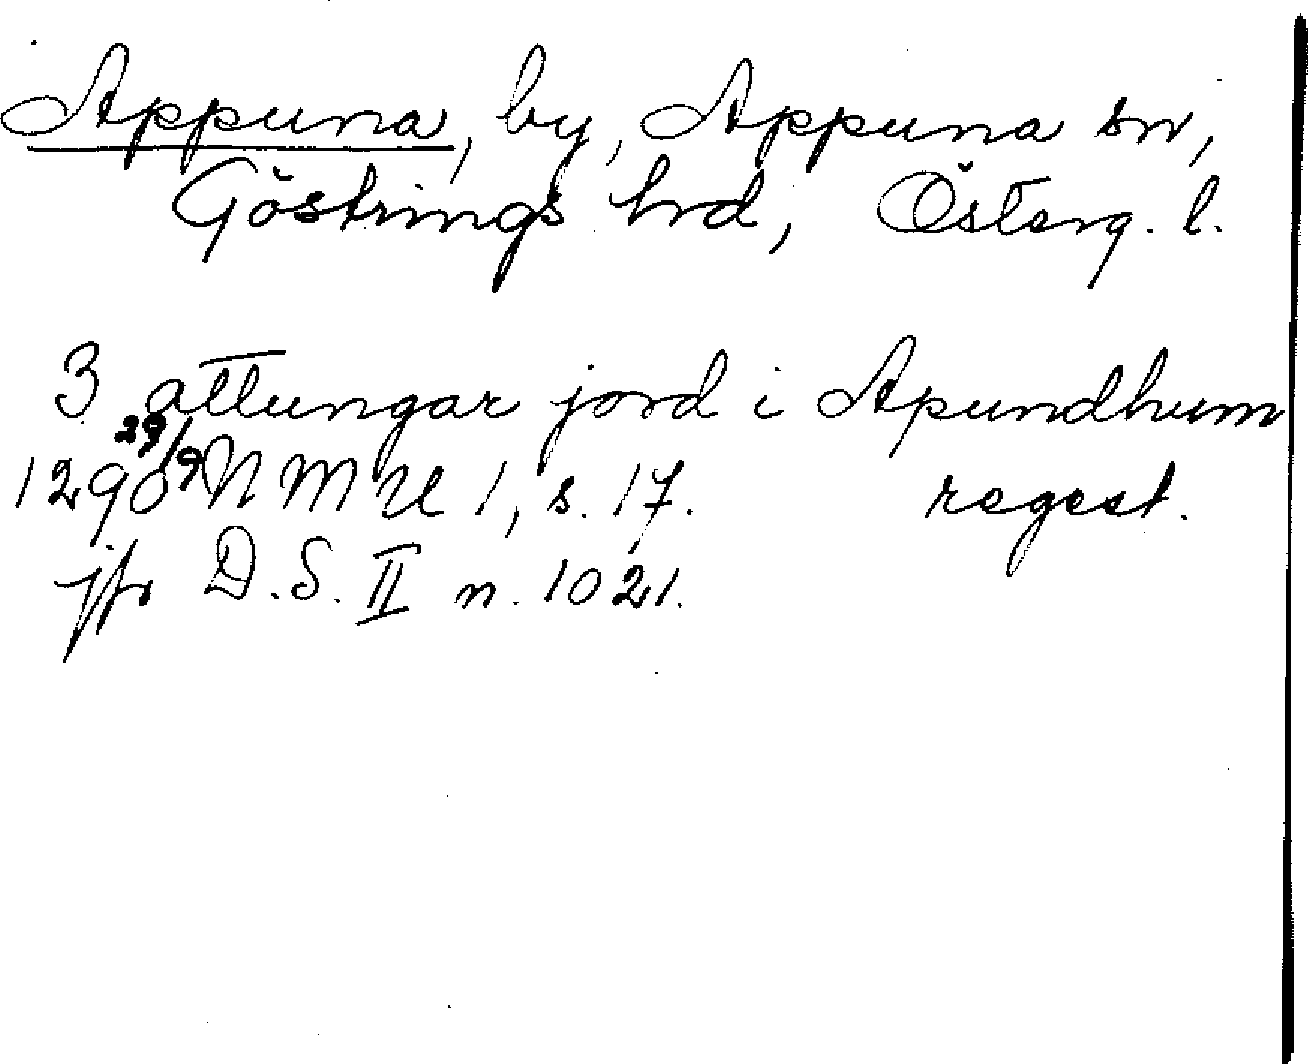 Appuna, by, Appuna sn,
Göstrings hrd, Österg. l.
3 attungar jord i Apundhum
1290 29/9 NMU 1, s. 17. regest.
jfr D.S. II n. 1021.